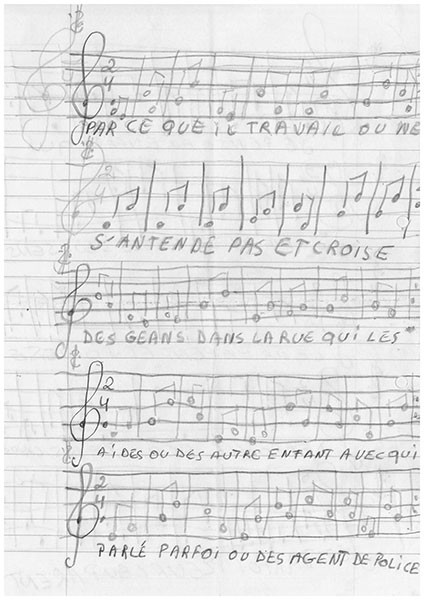 PAR CE QUE IL TRAVAIL OU NE
S'ANTENDE PAS ET CROISE
DES GEANS DANS LA RUE QUI LES
AIDES OU DES AUTRE ENFANT AVEC QUI
PARLÉ PARFOI OU DES AGENT DE POLICE